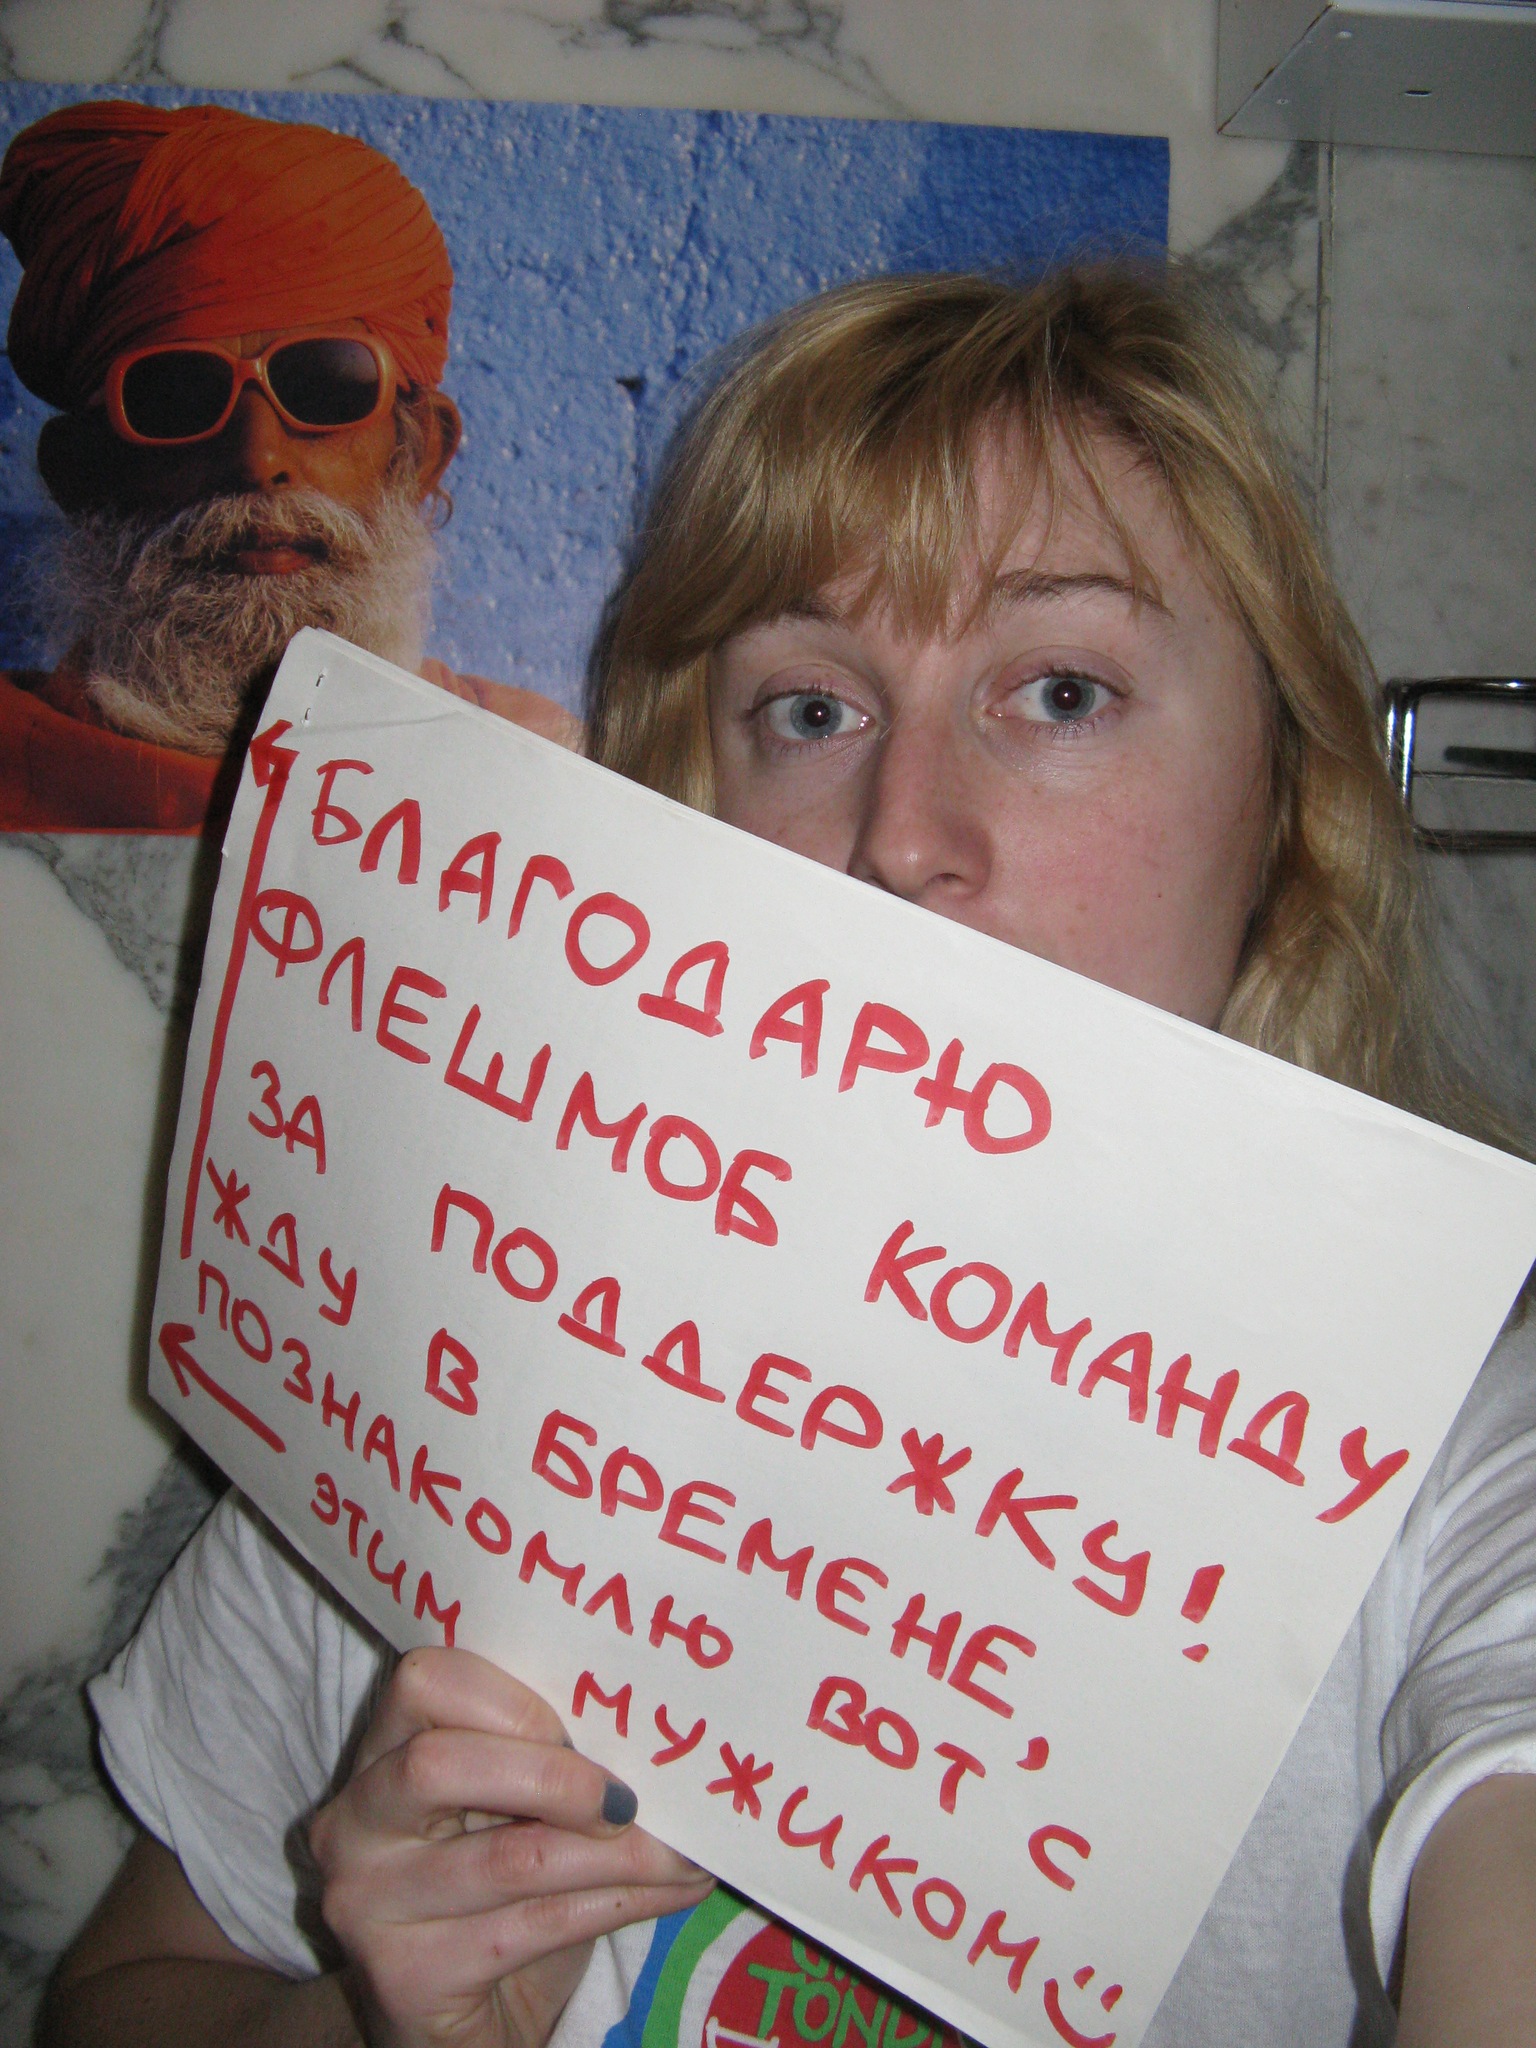 БЛАГОДАРЮ
ФЛЕШМОБ КОМАНДУ
ЗА ПОДДЕРЖКУ!
ЖДУ В БРЕМЕНЕ,
ПОЗНАКОМЛЮ ВОТ С
ЭТИМ МУЖИКОМ